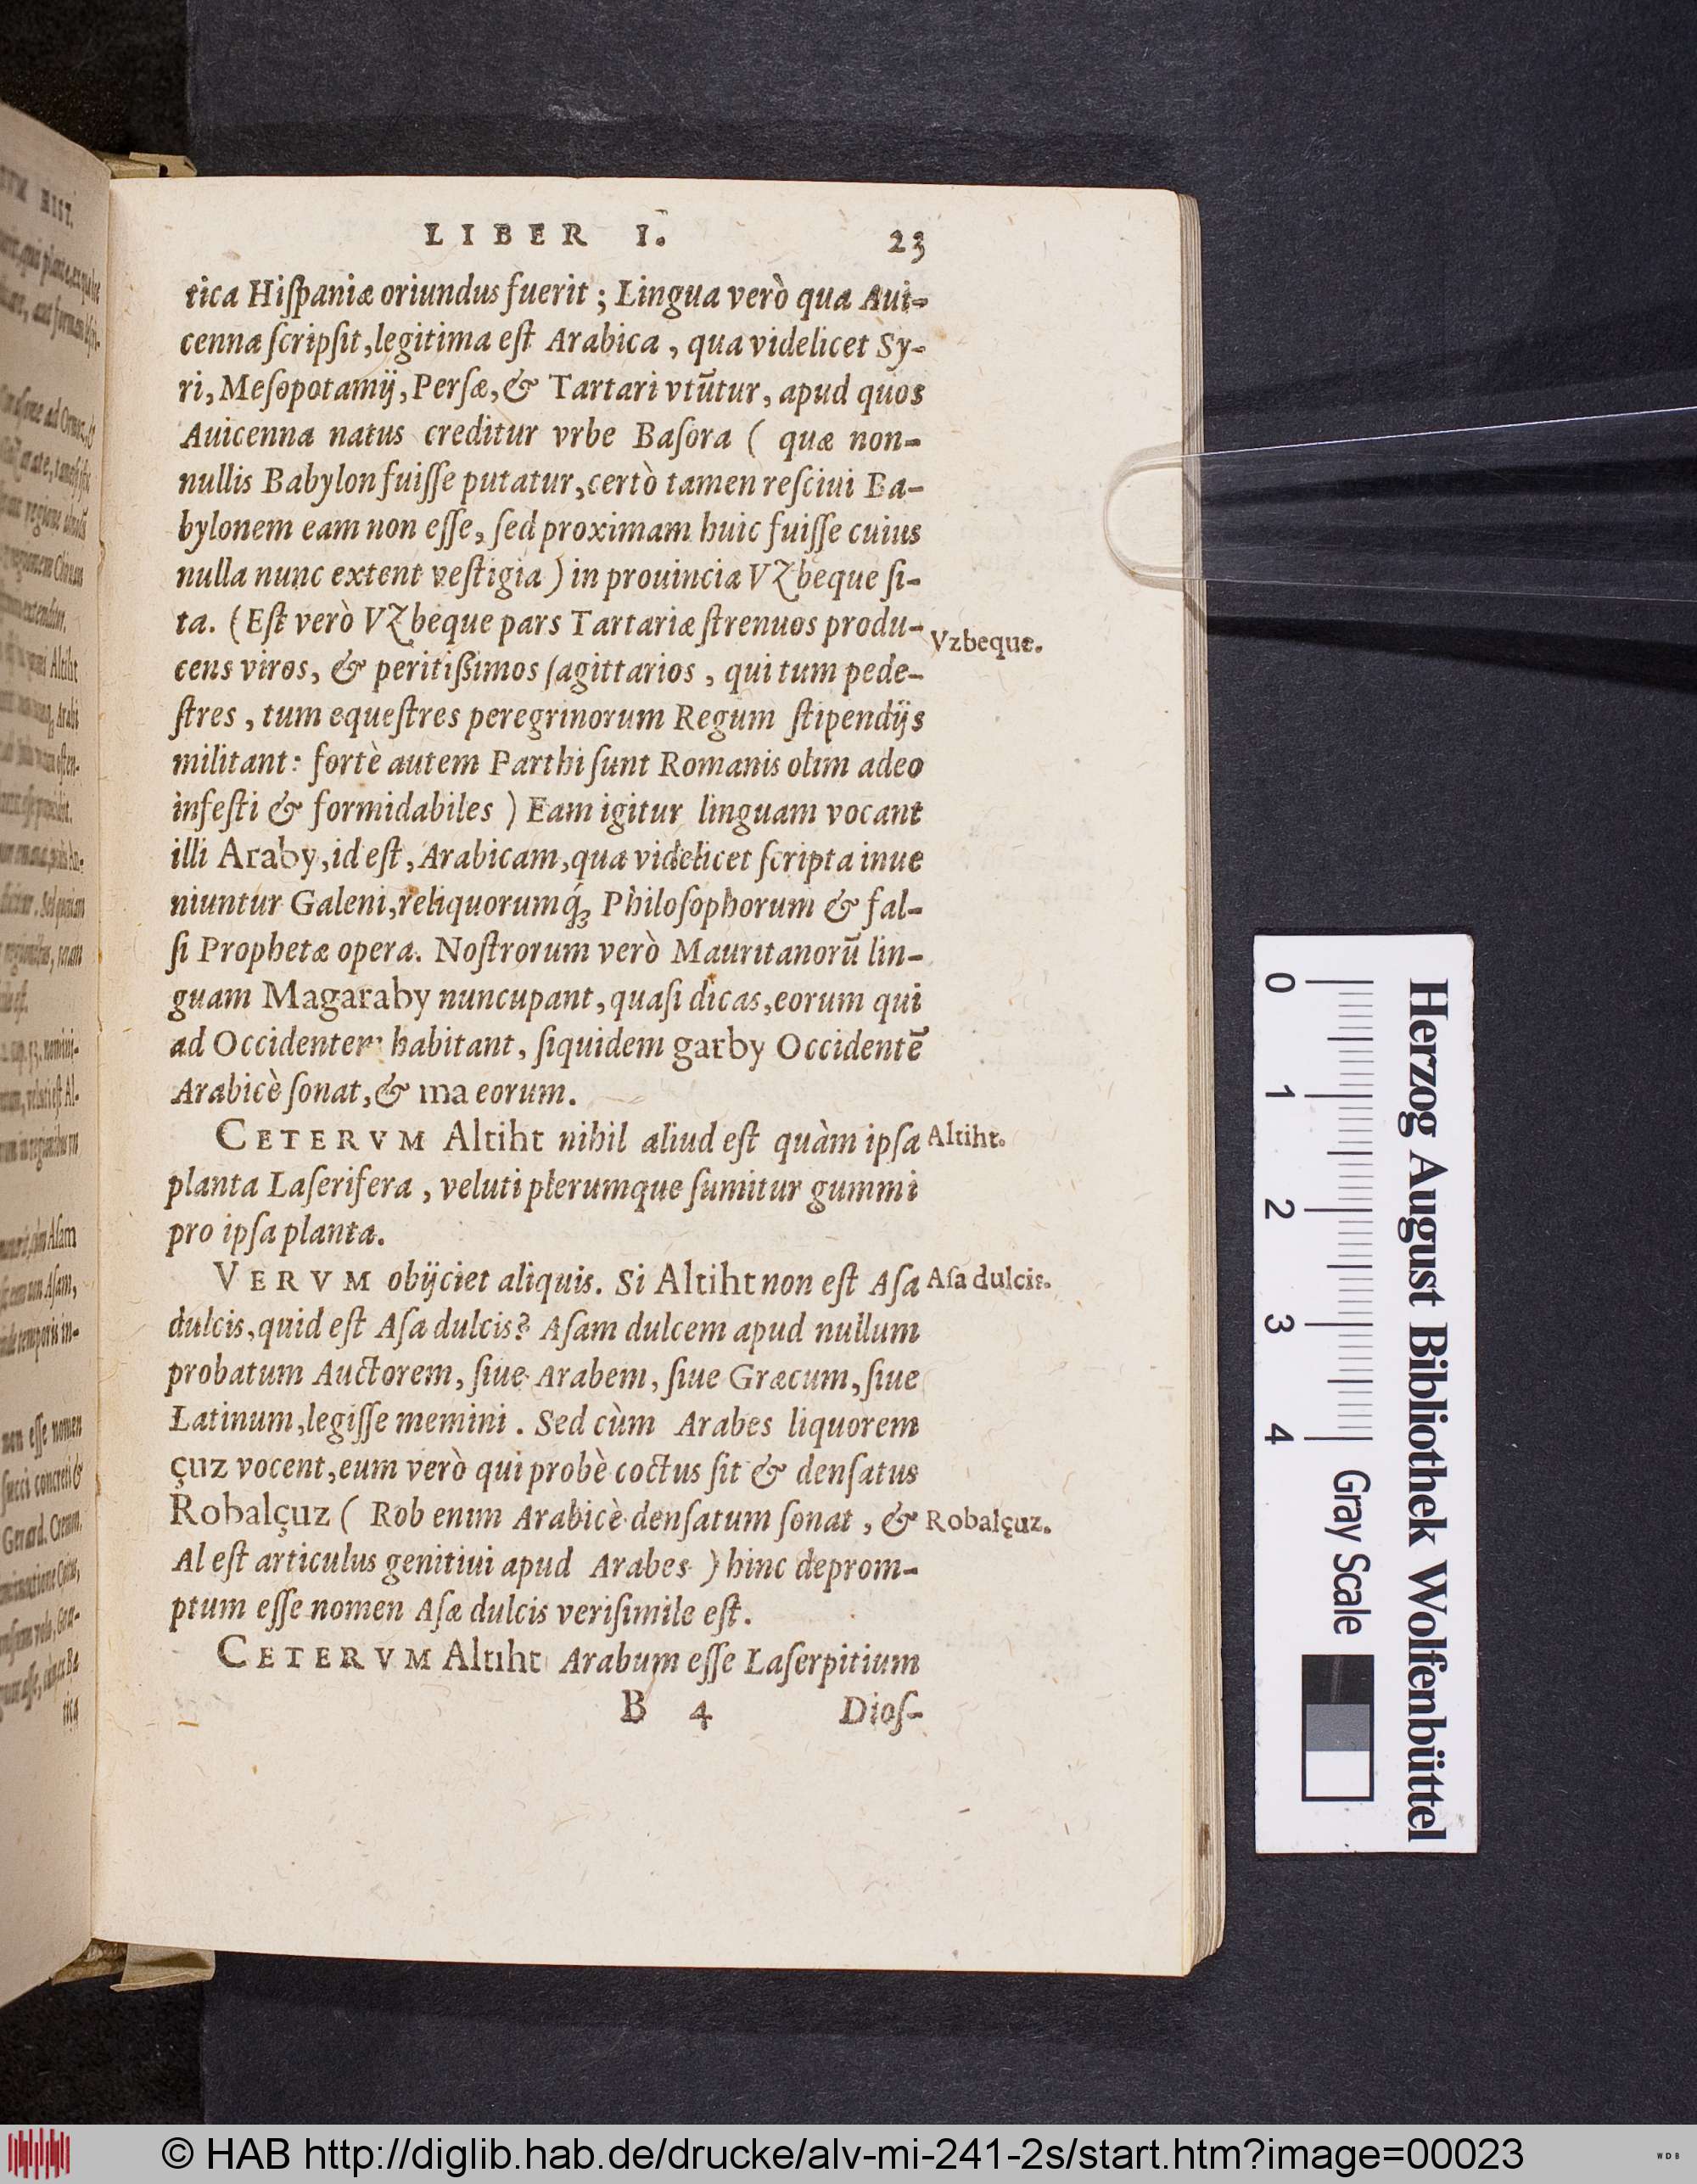 LIBER I. 23
tica Hiſpaniæ oriundus fuerit ; Lingua verò qua Aui-
cenna ſcripſit, legitima eſt Arabica , qua videlicet Sy-
ri, Meſopotamij, Perſæ, & Tartari vtūtur, apud quos
Auicenna natus creditur vrbe Baſora ( quæ non-
nullis Babylon fuiſſe putatur, certò tamen reſciui Ba-
bylonem eam non eſſe, ſed proximam huic fuiſſe cuius
nulla nunc extent veſtigia ) in prouincia Vzbeque ſi-
ta. (Eſt verò Vzbeque pars Tartariæ ſtrenuos produ-
Vzbeque.
cens viros, & peritiſsimos ſagittarios , qui tum pede-
ſtres , tum equeſtres peregrinorum Regum ſtipendijs
militant: fortè autem Parthi ſunt Romanis olim adeo
infeſti & formidabiles ) Eam igitur linguam vocant
illi Araby, id eſt, Arabicam, qua videlicet ſcripta inue
niuntur Galeni, reliquorumq́; Philoſophorum & fal-
ſi Prophetæ opera. Noſtrorum verò Mauritanorū lin-
guam Magaraby nuncupant, quaſi dicas, eorum qui
ad Occidentem habitant, ſiquidem garby Occidentē
Arabicè ſonat, & ma eorum.
CETERVM Altiht nihil aliud eſt quàm ipſa
Altiht.
planta Laſerifera , veluti plerumque ſumitur gummi
pro ipſa planta.
VERVM obijciet aliquis. Si Altiht non eſt Aſa
Aſa dulcis.
dulcis, quid eſt Aſa dulcis? Aſam dulcem apud nullum
probatum Auctorem, ſiue Arabem, ſiue Græcum, ſiue
Latinum, legiſſe memini . Sed cùm Arabes liquorem
çuz vocent, eum verò qui probè coctus ſit & denſatus
Robalçuz ( Rob enim Arabicè denſatum ſonat , &
Robalçuz.
Al eſt articulus genitiui apud Arabes ) hinc deprom-
ptum eſſe nomen Aſæ dulcis veriſimile eſt.
CETERVM Altiht Arabum eſſe Laſerpitium
B 4 Dioſ-
Herzog August Bibliothek Wolfenbüttel
0 1 2 3 4 Gray Scale
© HAB http://diglib.hab.de/drucke/alv-mi-241-2s/start.htm?image=00023
WDB